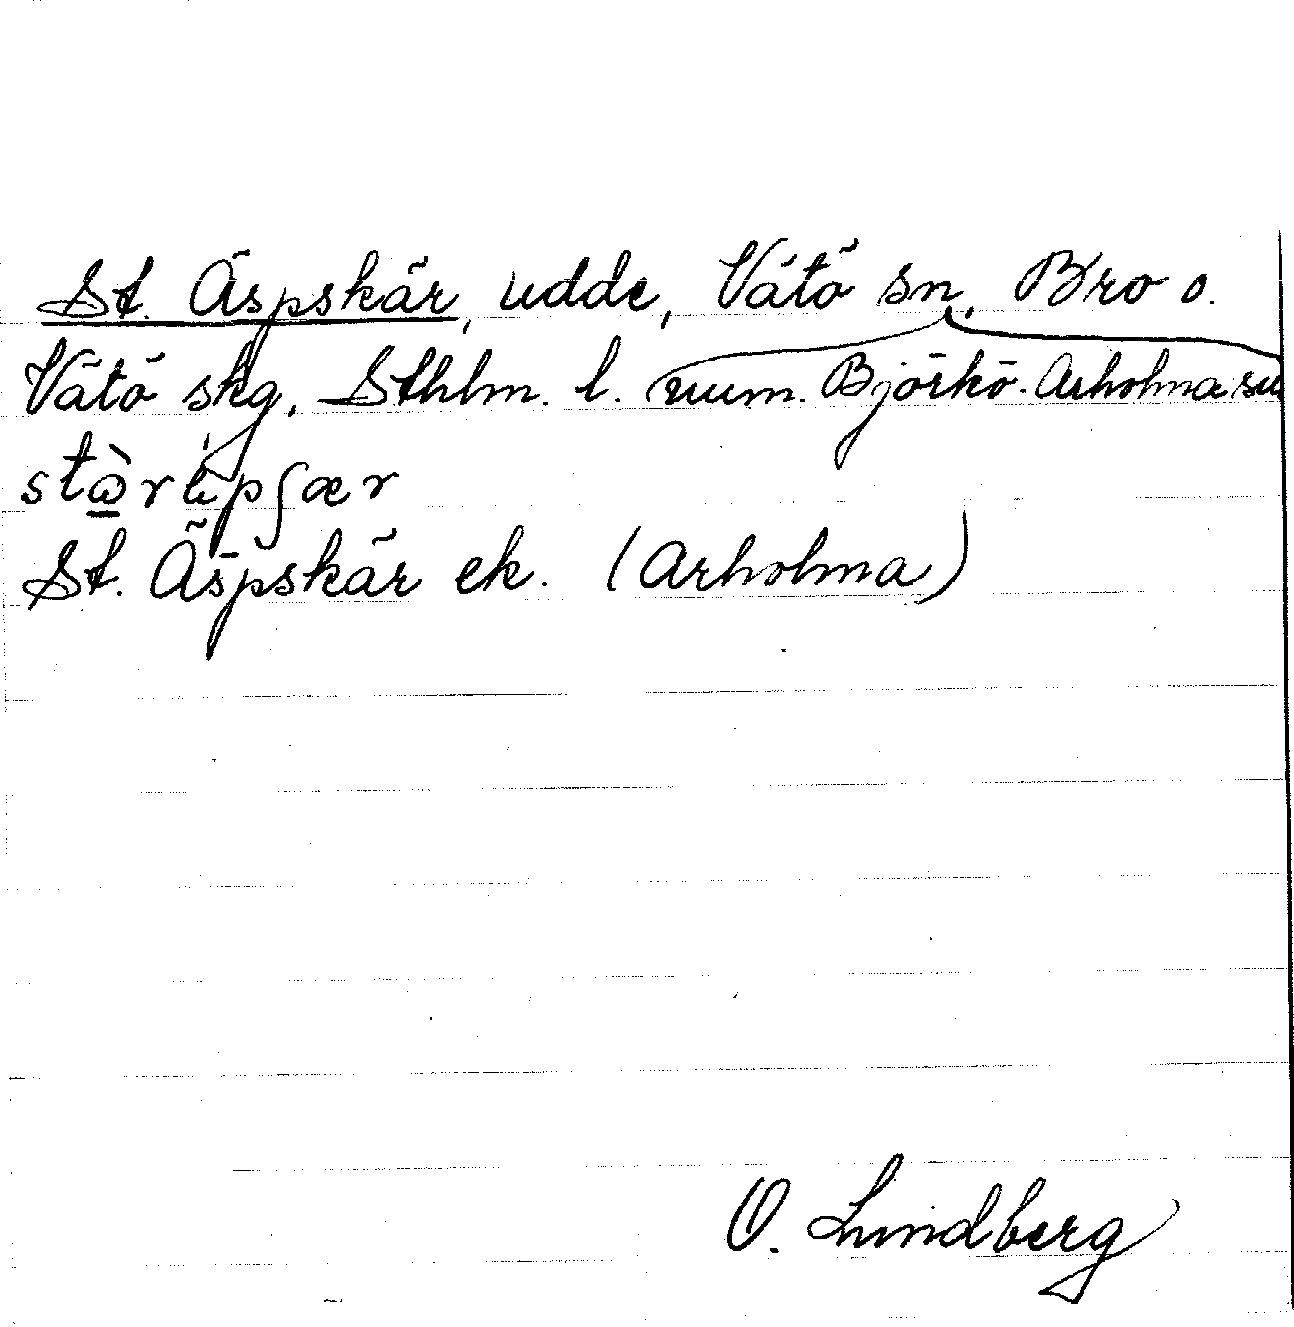 St. Äspskär, udde, Vätö sn, Bro o.
Vätö skg, Sthlm. l. (num. Björkö-Arholma sn
St. Äspskär ek. (Arholma)
O. Lundberg